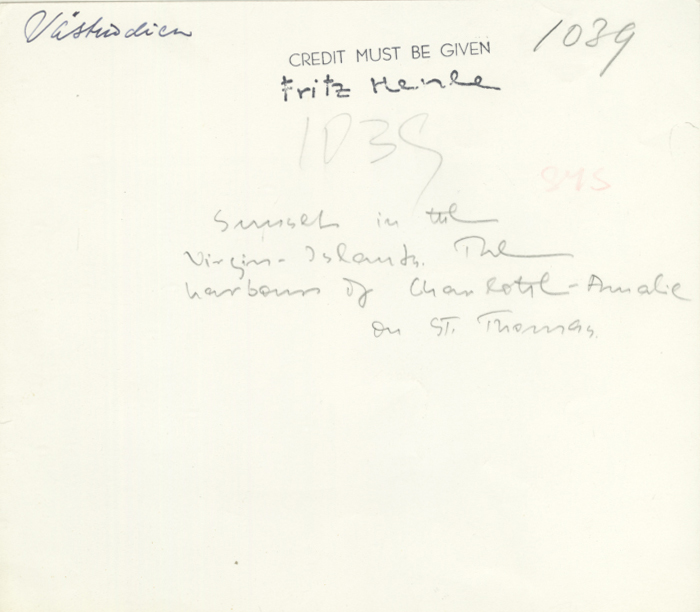 Västindien
1039
CREDIT MUST BE GIVEN
Fritz Henle
1039
845
Sunset in the
Virgin-Islands. The
harbour of Charlotte-Amalie
on ST. Thomas.